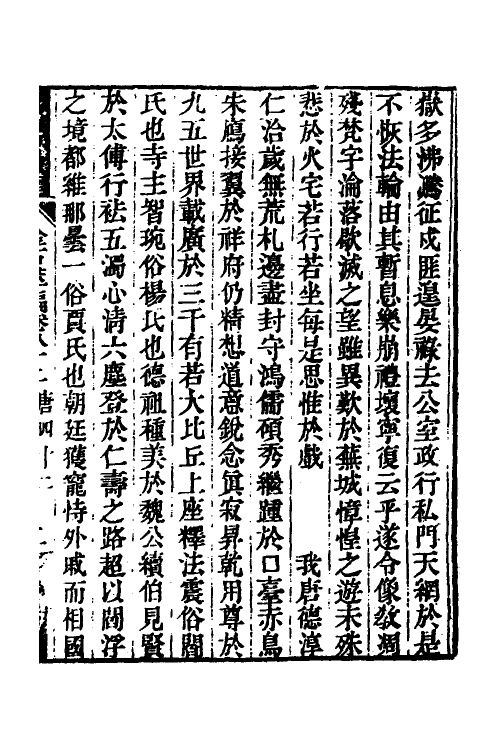 獄多沸騰征戍匪遑晏祿去公室政行私門天網於是
不恢法輪由其暫息樂崩禮壞寧復云乎遂令像教凋
殘梵字淪落歇滅之望雖異歎於蕪城憧惶之遊未殊
悲於火宅若行若坐每是思惟於戲　我唐德淳
仁洽歲無荒札邊盡封守鴻儒碩秀繼踵於口臺赤烏
朱鴈接翼於祥府仍精想道意銳念眞寂昇乾用尊於
九五世界載廣於三千有若大比丘上座釋法震俗閻
氏也寺主智琬俗楊氏也德祖種美於魏公續伯見賢
於太傅行袪五濁心清六塵登於仁壽之路超以閻浮
之境都維那曇一俗賈氏也朝廷獲寵恃外戚而相國
金石萃編卷八十二 唐四十二